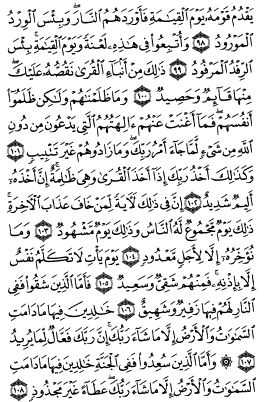 يَقْدُمُ قَوْمَهُ يَوْمَ الْقِيَـٰمَةِ فَأَوْرَدَهُمُ النَّارَ ۖ وَبِئْسَ الْوِرْدُ
الْمَوْرُودُ ۝٩٨ وَأُتْبِعُوا۟ فِى هَـٰذِهِۦ لَعْنَةً وَيَوْمَ الْقِيَـٰمَةِ ۚ بِئْسَ
الرِّفْدُ الْمَرْفُودُ ۝٩٩ ذَٰلِكَ مِنْ أَنۢبَآءِ الْقُرَىٰ نَقُصُّهُۥ عَلَيْكَ ۖ
مِنْهَا قَآئِمٌ وَحَصِيدٌ ۝١٠٠ وَمَا ظَلَمْنَـٰهُمْ وَلَـٰكِن ظَلَمُوٓا۟
أَنفُسَهُمْ ۖ فَمَآ أَغْنَتْ عَنْهُمْ ءَالِهَتُهُمُ الَّتِى يَدْعُونَ مِن دُونِ
اللَّهِ مِن شَىْءٍ لَّمَّا جَآءَ أَمْرُ رَبِّكَ ۖ وَمَا زَادُوهُمْ غَيْرَ تَتْبِيبٍ ۝١٠١
وَكَذَٰلِكَ أَخْذُ رَبِّكَ إِذَآ أَخَذَ الْقُرَىٰ وَهِىَ ظَـٰلِمَةٌ ۚ إِنَّ أَخْذَهُۥٓ
أَلِيمٌ شَدِيدٌ ۝١٠٢ إِنَّ فِى ذَٰلِكَ لَـَٔايَةً لِّمَنْ خَافَ عَذَابَ الْـَٔاخِرَةِ ۚ
ذَٰلِكَ يَوْمٌ مَّجْمُوعٌ لَّهُ النَّاسُ وَذَٰلِكَ يَوْمٌ مَّشْهُودٌ ۝١٠٣ وَمَا
نُؤَخِّرُهُۥٓ إِلَّا لِأَجَلٍ مَّعْدُودٍ ۝١٠٤ يَوْمَ يَأْتِ لَا تَكَلَّمُ نَفْسٌ
إِلَّا بِإِذْنِهِۦ ۚ فَمِنْهُمْ شَقِىٌّ وَسَعِيدٌ ۝١٠٥ فَأَمَّا الَّذِينَ شَقُوا۟ فَفِى
النَّارِ لَهُمْ فِيهَا زَفِيرٌ وَشَهِيقٌ ۝١٠٦ خَـٰلِدِينَ فِيهَا مَا دَامَتِ
السَّمَـٰوَٰتُ وَالْأَرْضُ إِلَّا مَا شَآءَ رَبُّكَ ۚ إِنَّ رَبَّكَ فَعَّالٌ لِّمَا يُرِيدُ
۝١٠٧ ۞ وَأَمَّا الَّذِينَ سُعِدُوا۟ فَفِى الْجَنَّةِ خَـٰلِدِينَ فِيهَا مَا دَامَتِ
السَّمَـٰوَٰتُ وَالْأَرْضُ إِلَّا مَا شَآءَ رَبُّكَ ۖ عَطَآءً غَيْرَ مَجْذُوذٍ ۝١٠٨